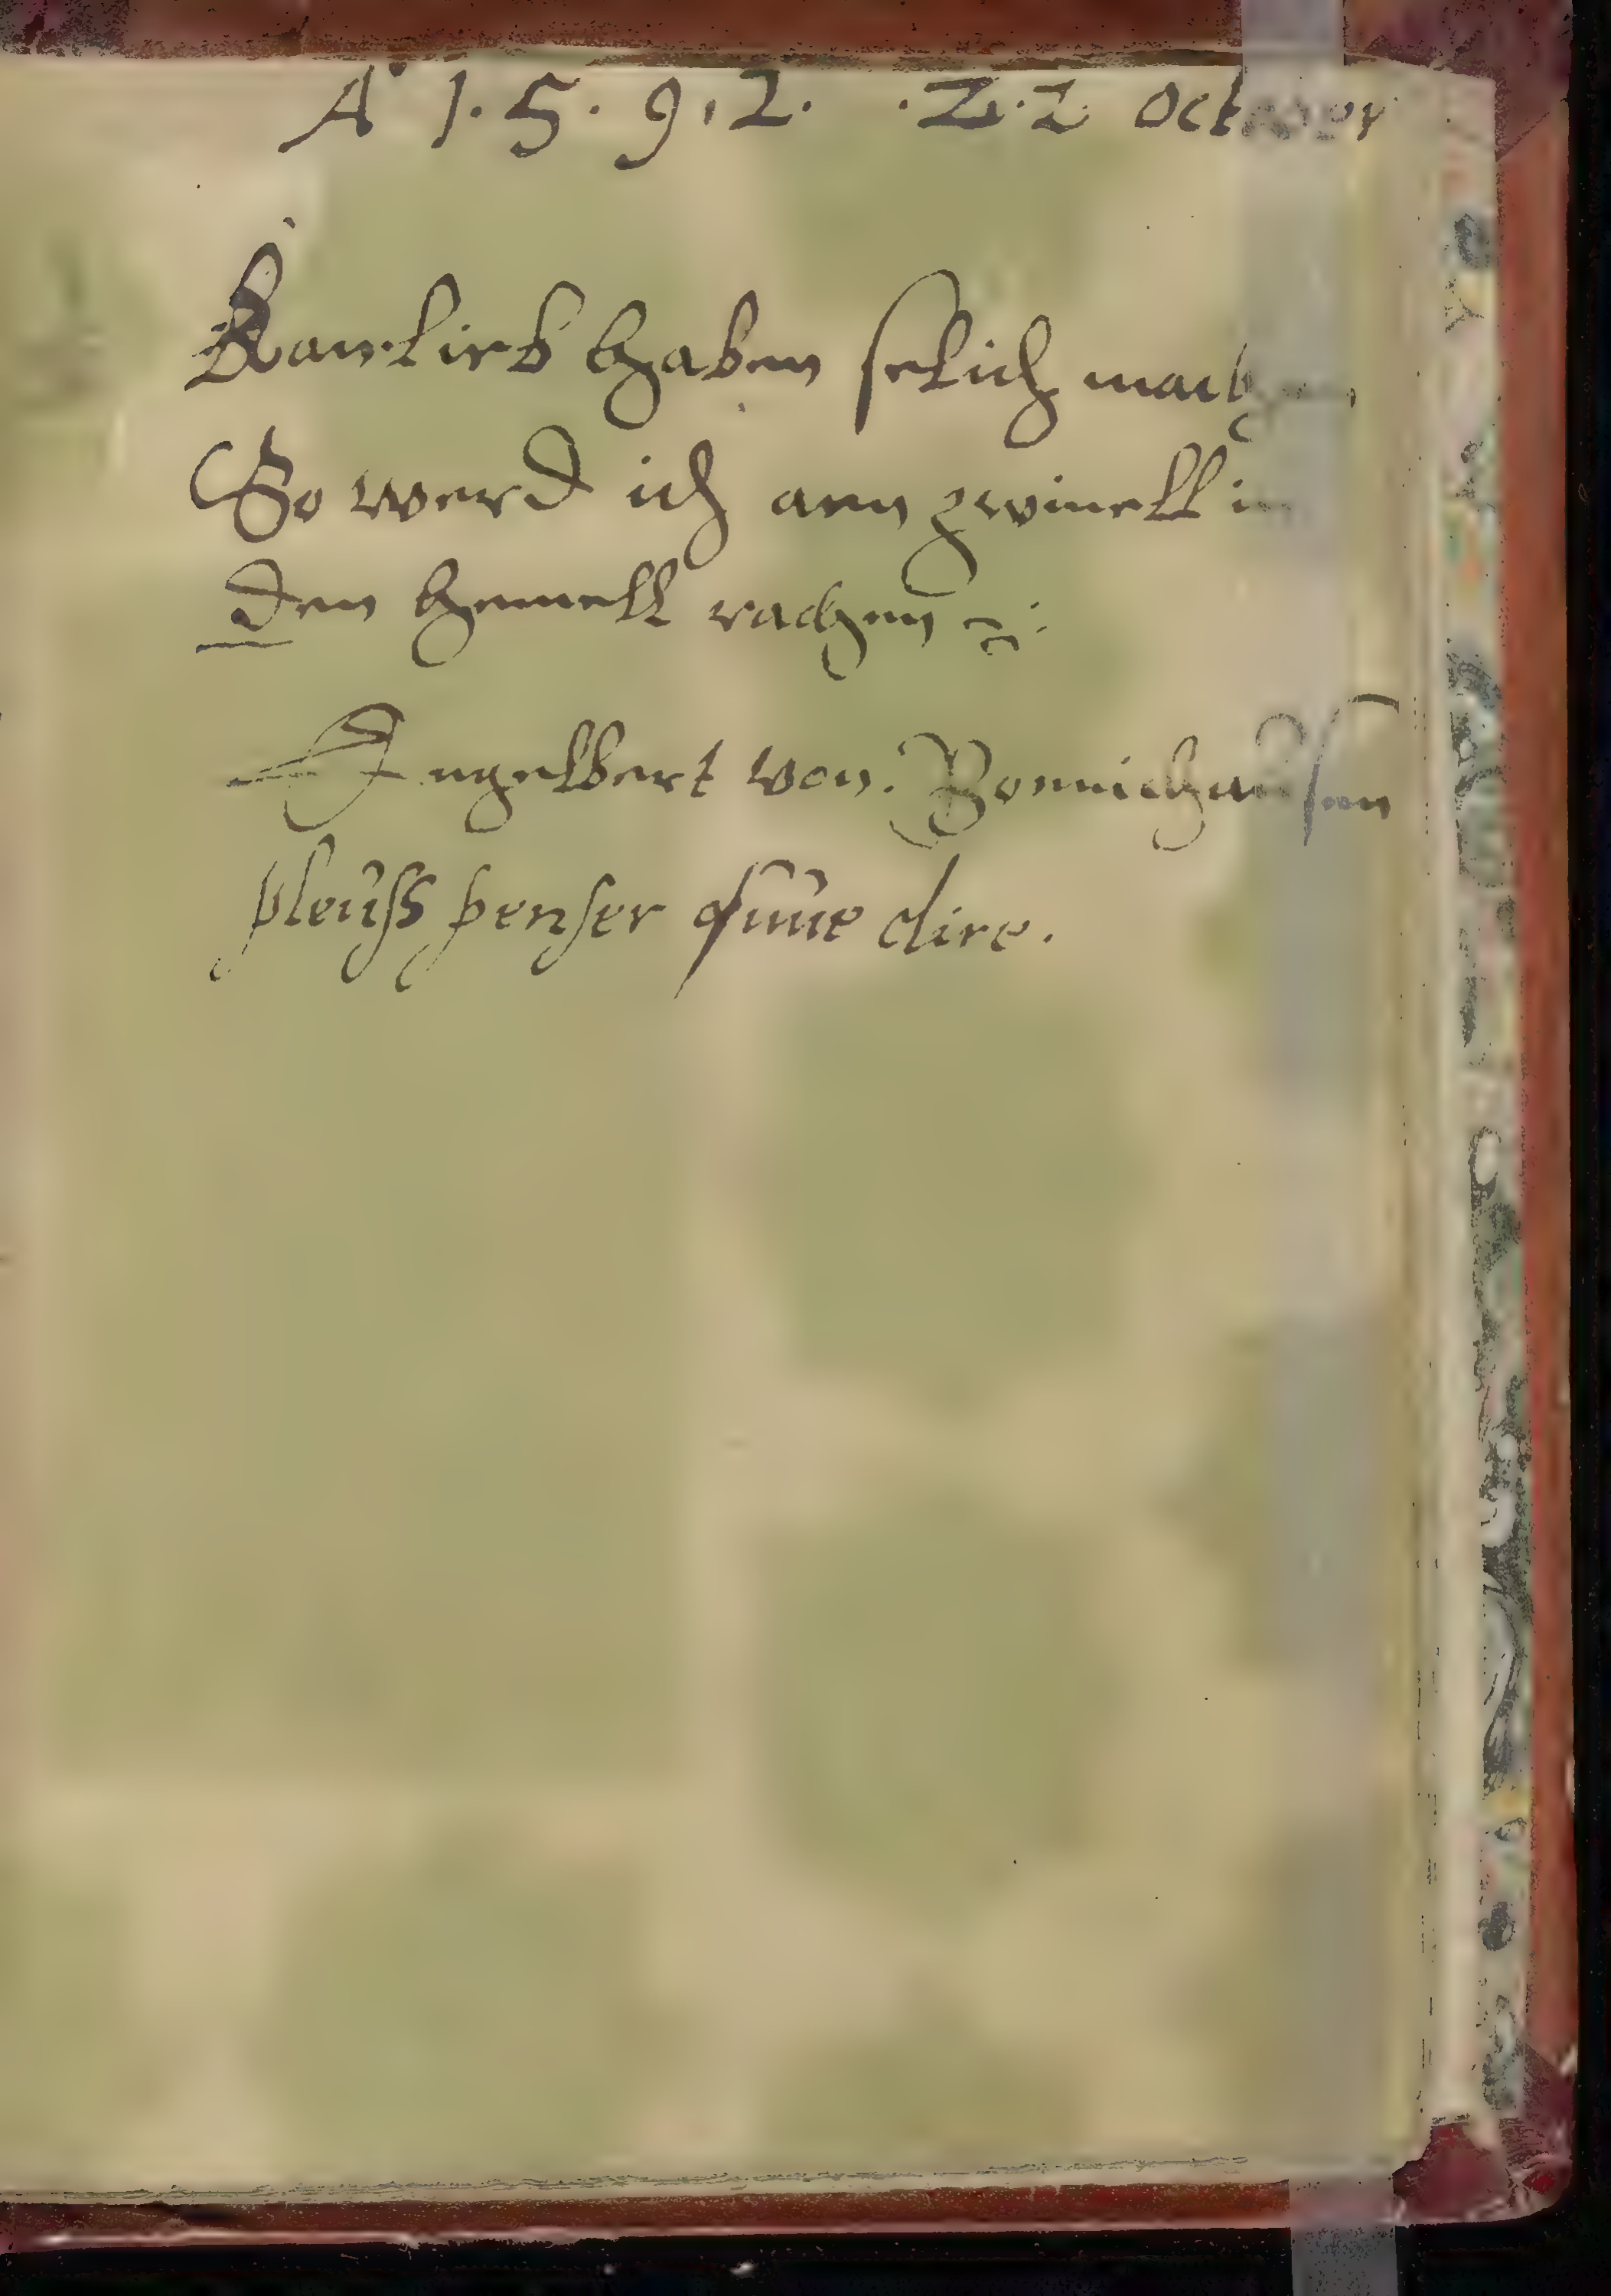 A° 1.5.9.2. .22 October
Kan lieb haben selich machen
So werd ich ann zwinell in
den hemell rachen
Engelbert von Bonninghausen
pleuss penser quue dire.